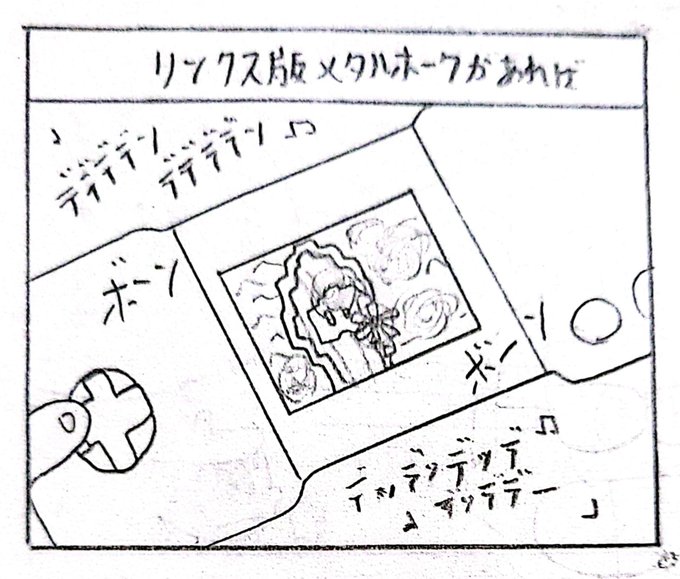 リンクス版メタルホークがあれば
♪デデデデーン
デデデデーン♫
ボーン
ボーン
デッデッデッデ♫
♪デッデデー♪